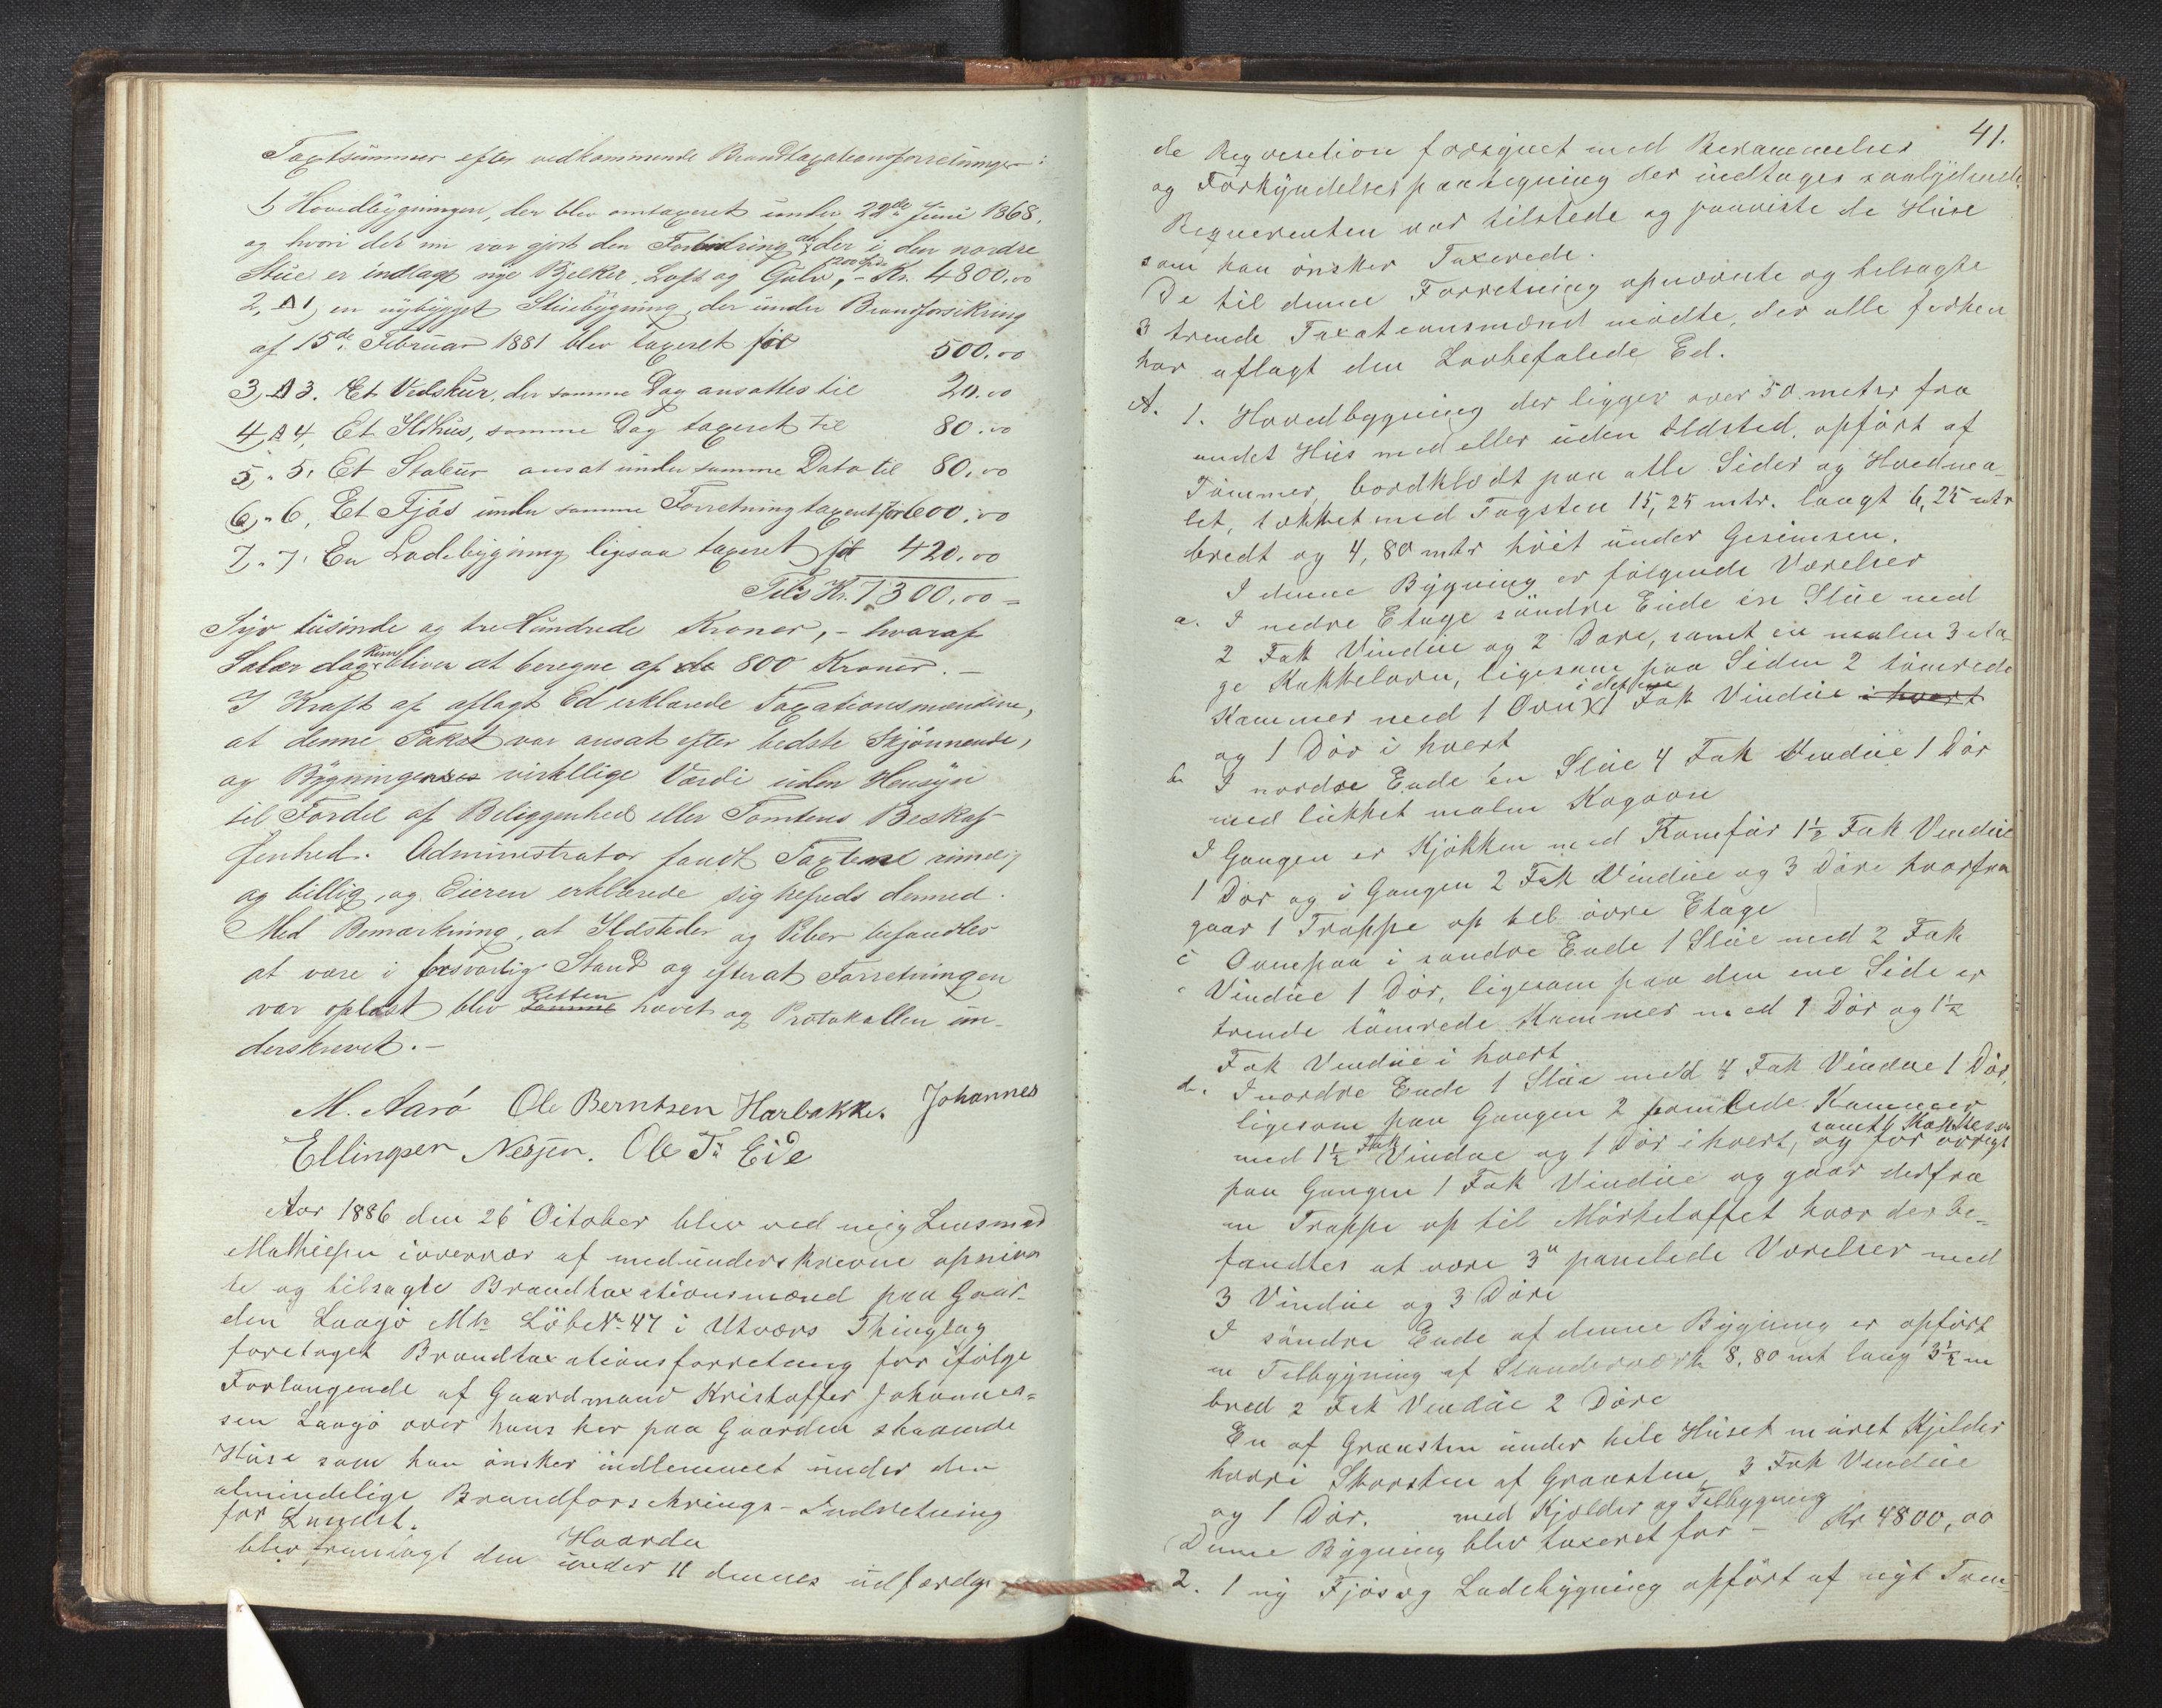 Taxtsummer efter vedkommende Brandtaxationsforretninger:
1, Hovedbygningen, der blev omtaxeret under 22de Juni 1868,
og hvori der nu var gjort den Forandring at der i den nordre
Stue er indlagt nye Bjelker, Loft og Gulv, - Kr. 4800.00
2, A 1, en nybygget Stuebygning, der under Brandforsikring
af 15de Februar 1881 blev taxeret for 500.00
3, A 3. Et Vedskur, der samme Dag ansattes til 20.00
4, A 4, Et Ildhus, samme Dag taxeret til 80.00
5, " 5, Et Stabur ansat under samme Dato til 80.00
6, " 6, Et Fjøs under samme Forretning taxeret for 600.00
7, " 7, En Ladebygning ligesaa taxeret for 420.00
Tils Kr. 7300.00 =
Syv tusinde og tre Hundrede Kroner, - hvoraf
Salær dog kun bliver at beregne af de 800 Kroner. -
I Kraft af aflagt Ed erklærede Taxationsmændene,
at denne Takst var ansat efter bedste Skjønnende,
og Bygningernes virkelige Værdi uden Hensyn
til Fordel af Beliggenhed eller Tomtens Beskaf-
fenhed. Administrator fandt Taxten rimelig
og billig, og Eieren erklærede sig tilfreds dermed.
Med Bemærkning, at Ildsteder og Piber befandtes
at være i forsvarlig Stand og efterat Forretningen
var oplæst blev samme Retten hævet og Protokollen un-
derskrevet. -
M. Aarö Ole Berntsen Harbakke. Johannes
Ellingsen Nesjen. Ole T. Eide
Aar 1886 den 26 October blev ved mig Lensmand
Mathiesen i overvær af medunderskrevne opnævn
te og tilsagte Brandtaxationsmænd paa Gaar-
den Langö Mtr Löbe No 47 i Utværs Thinglag
foretaget Brandtaxationsforretning for ifølge
Forlangende af Gaardmand Kristoffer Johannes=
sen Langö over hans her paa Gaarden staaende
Huse som han ønsker indlemmet under den
almindelige Brandforsikrings-Indretning
for Landet.
Hvorda
blev fremlagt den under 11 dennes udfærdige
41.
de Reqvisition forsynet med Berammelses
og Forkyndelsespaategning der indtages saalydende
Reqvirenten var tilstede og paaviste de Huse
som han ønsker Taxerede.
De til denne Forretning opnævnte og tilsagte
3 trende Taxationsmænd mødte, der alle forhen
har aflagt den Lovbefalede Ed.
A. 1. Hovedbygning der ligger over 50 meter fra
andet Hus med eller uden Ildsted, opført af
Tømmer, bordklædt paa alle Sider og Hvidma-
let, tækket med Tagsten 15,25 mtr. langt 6,25 mtr
bredt og 4,80 mtr höit under Gesimsen.
I denne Bygning er følgende Værelser
a. I nedre Etage söndre Ende en Stue med
2 Fak Vindue og 2 Døre, samt en malen 3 eta
ge Kakkelovn, ligesom paa Siden 2 tømrede
Kammer med 1 Ovn i det ene 1 Fak Vindue i hvert
og 1 Dör i hvert
b. I nordre Ende en Stue 4 Fak Vindue 1 Dör
med lukket malen Kogeovn
I Gangen er Kjøkken med Komfür 1½ Fak Vindue
1 Dör og i Gangen 2 Fak Vindue og 3 Döre hvorfra
gaar 1 Trappe op til övre Etage
c Ovenpaa i söndre Ende 1 Stue med 2 Fak
Vindue 1 Dör, ligesom paa den ene Side er
trende tömrede Kammer med 1 Dör og 1½
Fak Vindue i hvert
d. I nordre Ende 1 Stue med 4 Fak Vindue 1 Dör,
ligesom paa Gangen 2 panelede Kammer
samt 1 Kakkelovn
med 1½ Fak Vindue og 1 Dör i hvert, og för övrigt
paa Gangen 1 Fak Vindue og gaar derfra
en Trappe op til Mörkeloftet hvor der be-
fandtes at være 3" panelede Værelser med
3 Vindue og 3 Döre
I söndre Ende af denne Bygning er opført
en Tilbygning af Standerværk 8,80 mt lang 3½ m
bred 2 Fak Vindue 2 Döre
En af Graasten under hele Huset muret Kjelder
hvori Skorsten af Graasten, 3 Fak Vindue
og 1 Dör. med Kjelder og Tilbygning
Denne Bygning blev taxeret for - Kr 4800,00
2. 1 ny Fjøs og Ladebygning opført af nyt Töm-